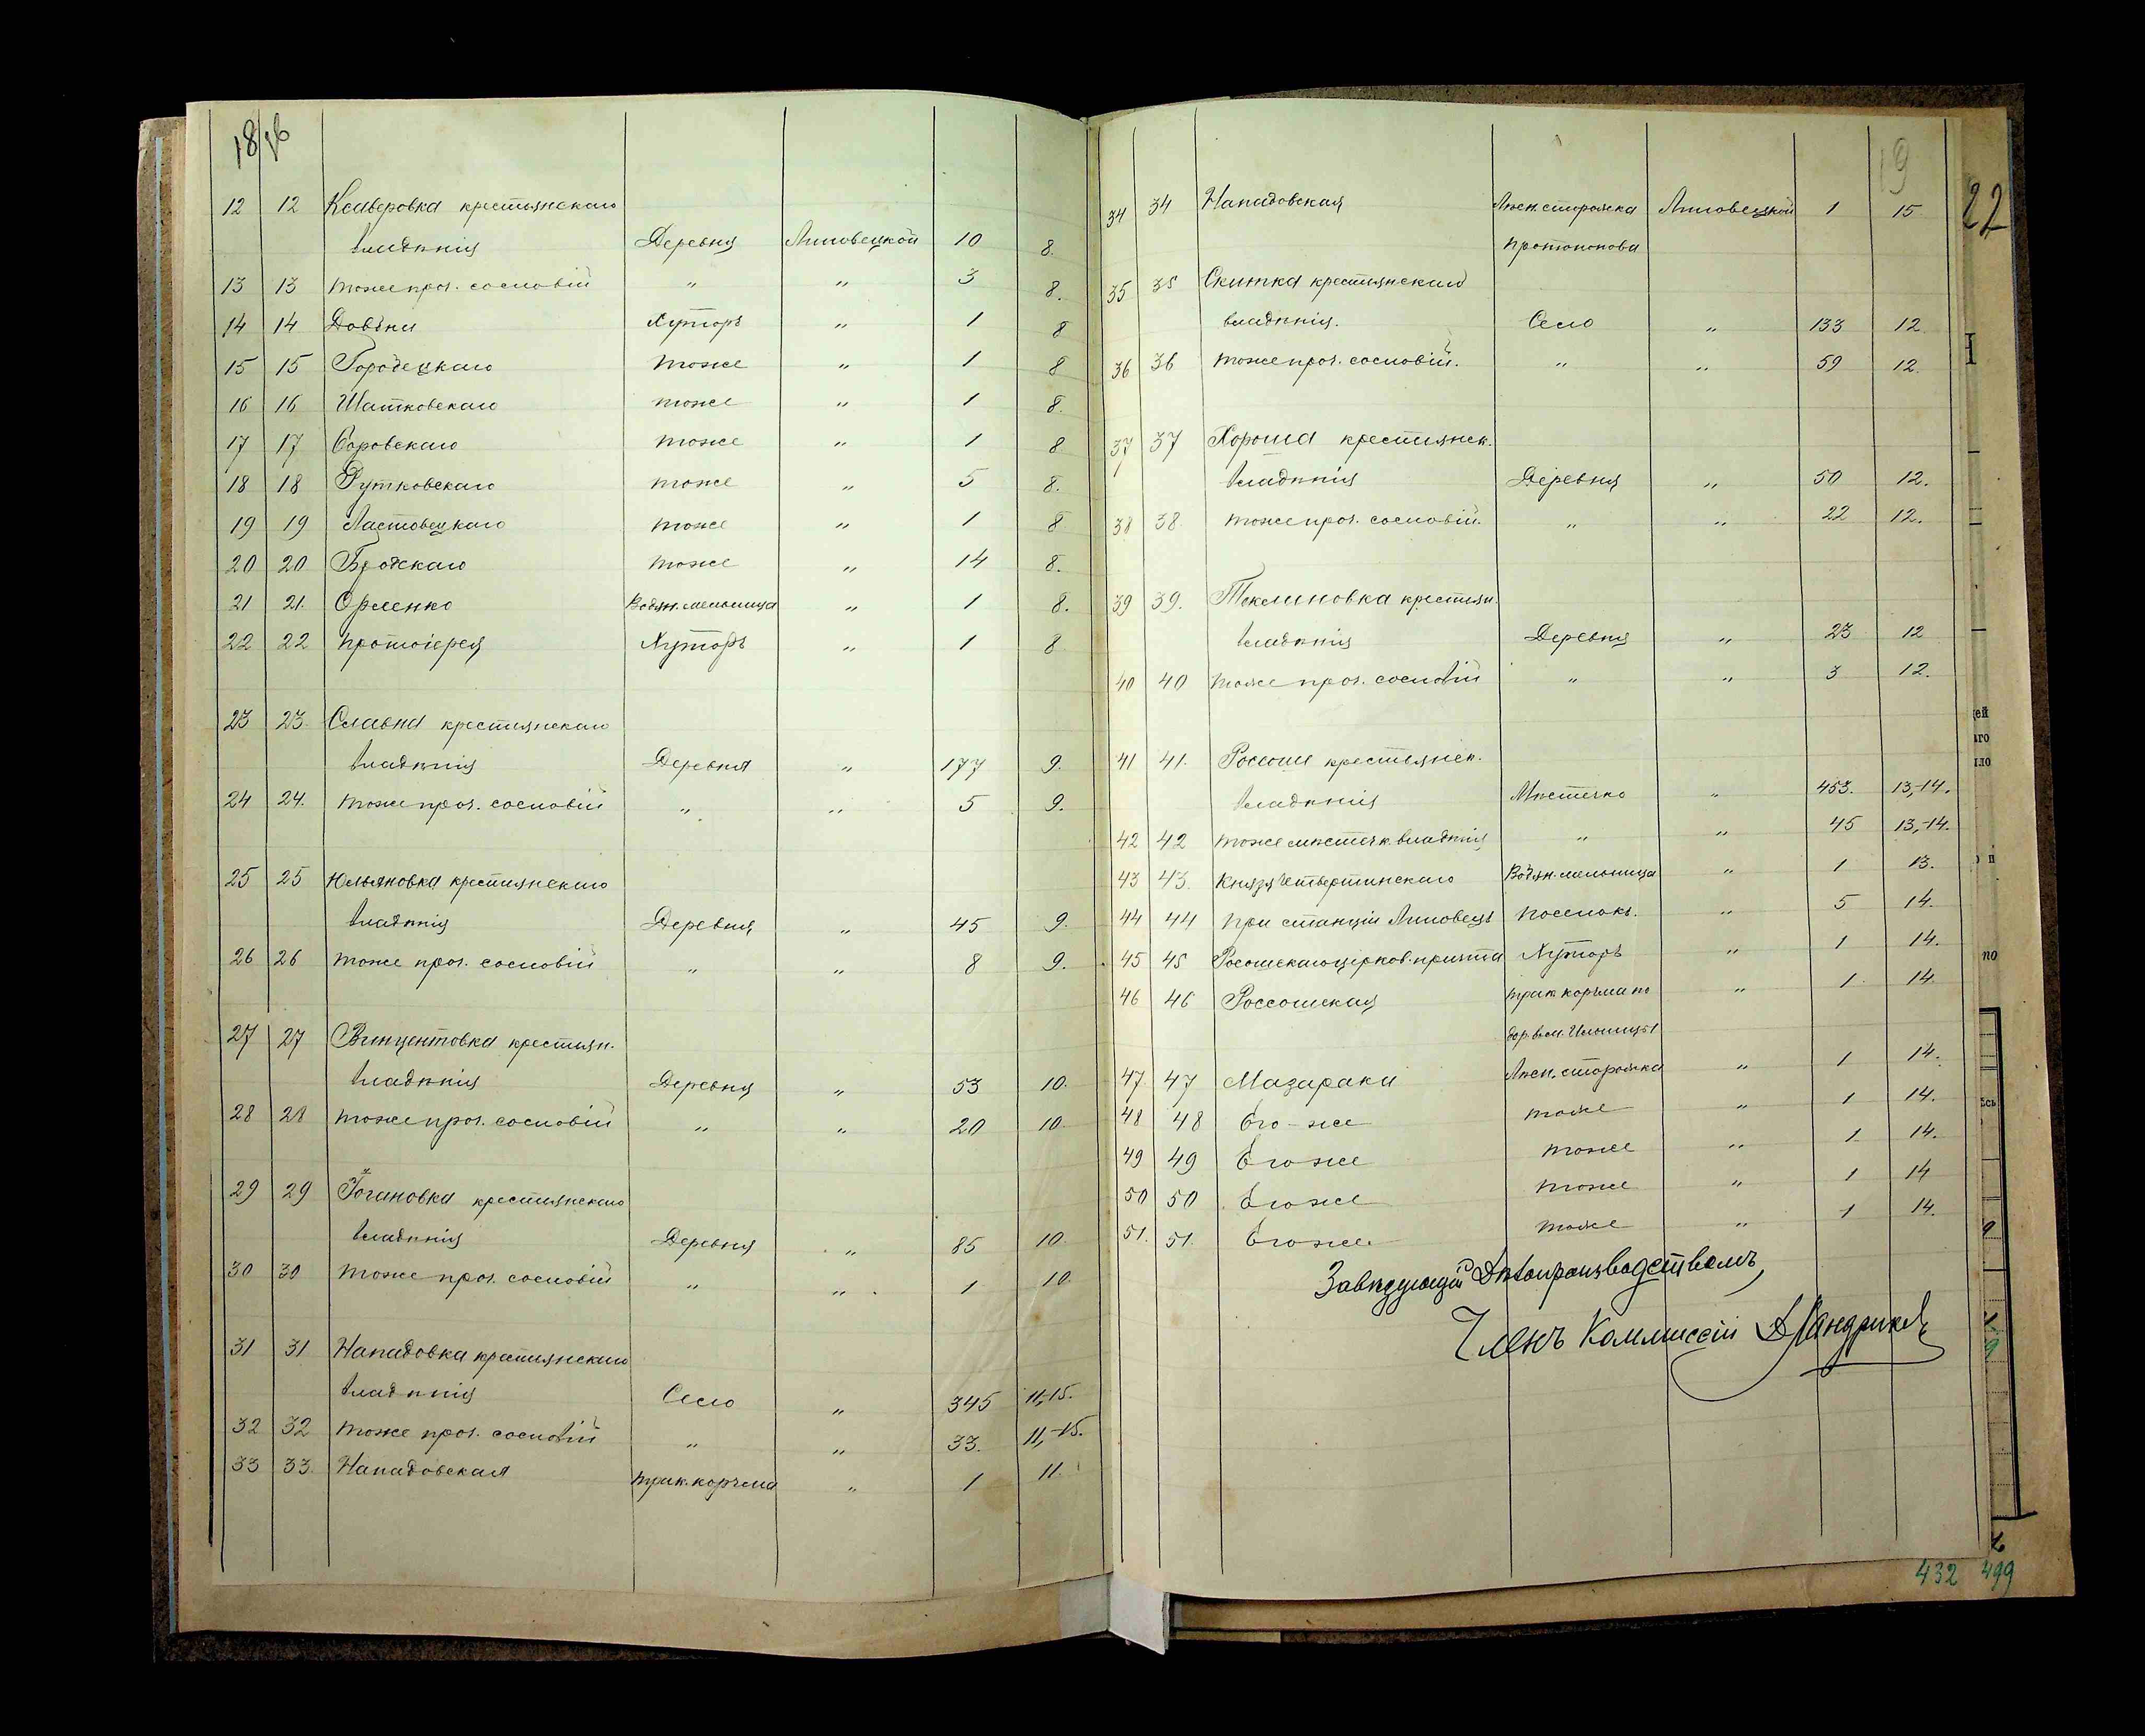 18 об
12 12 Ксаверовка крестьянскаго
владѣнія Деревня Липовецкой 10 8.
13 13 тоже проч. сословій " " 3 8.
14 14 Хуторъ " 1 8
15 15 Городецкаго тоже " 1 8
16 16 Шатковскаго тоже " 1 8.
17 17 тоже " 1 8
18 18 Рутковскаго тоже " 5 8.
19 19 Ластовецкаго тоже " 1 8
20 20 Бродскаго тоже " 14 8.
21 21. Орленко Водян. мельница " 1 8.
22 22 Протоіерея Хуторъ " 1 8
23 23 Славна крестьянскаго
владѣнія Деревня " 177 9.
24 24. тоже проч. сословій " " 5 9.
25 25 Юльяновка крестьянскаго
владѣнія Деревня " 45 9.
26 26 тоже проч. сословій " " 8 9.
27 27 Винцентовка крестьян.
владѣнія Деревня " 53 10.
28 28 тоже проч. сословій " " 20 10.
29 29 крестьянскаго
владѣнія Деревня " 85 10.
30 30 тоже проч. сословій " " 1 10.
31 31 Нападовка крестьянскаго
владѣнія Село " 345 11,-15.
32 32 тоже проч. сословій " " 33. 11,-15.
33 33. Нападовская трак. корчма " 1 11.
19
22
34 34 Нападовская Лѣсн. сторожка Липовецкой 1 15
Протопопова
35 35 Скитка крестьянскаго
владѣнія. Село " 133 12.
36 36 тоже проч. сословій. " " 59 12.
37 37 Хороша крестьянск.
владѣнія Деревня " 50 12.
38 38 тоже проч. сословій. " " 22 12.
39 39. Теклиновка крестьян.
владѣнія Деревня " 23 12
40 40 тоже проч. сословій " " 3 12.
41 41. Россоше крестьянск.
владѣнія Мѣстечко " 453. 13,-14.
42 42 тоже мѣстечк. владѣнія " " 45 13,-14.
43 43. Князя Четвертинскаго Водян. мельница " 1 13.
44 44 При станціи Липовецъ Поселокъ. " 5 14.
45 45 Росошскаго церков. причта Хуторъ " 1 14.
46 46 Россошская трак. корчма по " 1. 14.
дор. въ м. Ильинцы
47 47 Мазараки Лѣсн. сторожка " 1 14.
48 48 Его-же тоже " 1 14.
49 49 Его же тоже " 1 14.
50 50 Его же тоже " 1 14
51. 51. Его же тоже " 1 14.
Завѣдующій Дѣлопроизводствомъ,
Членъ Коммиссіи
432 499